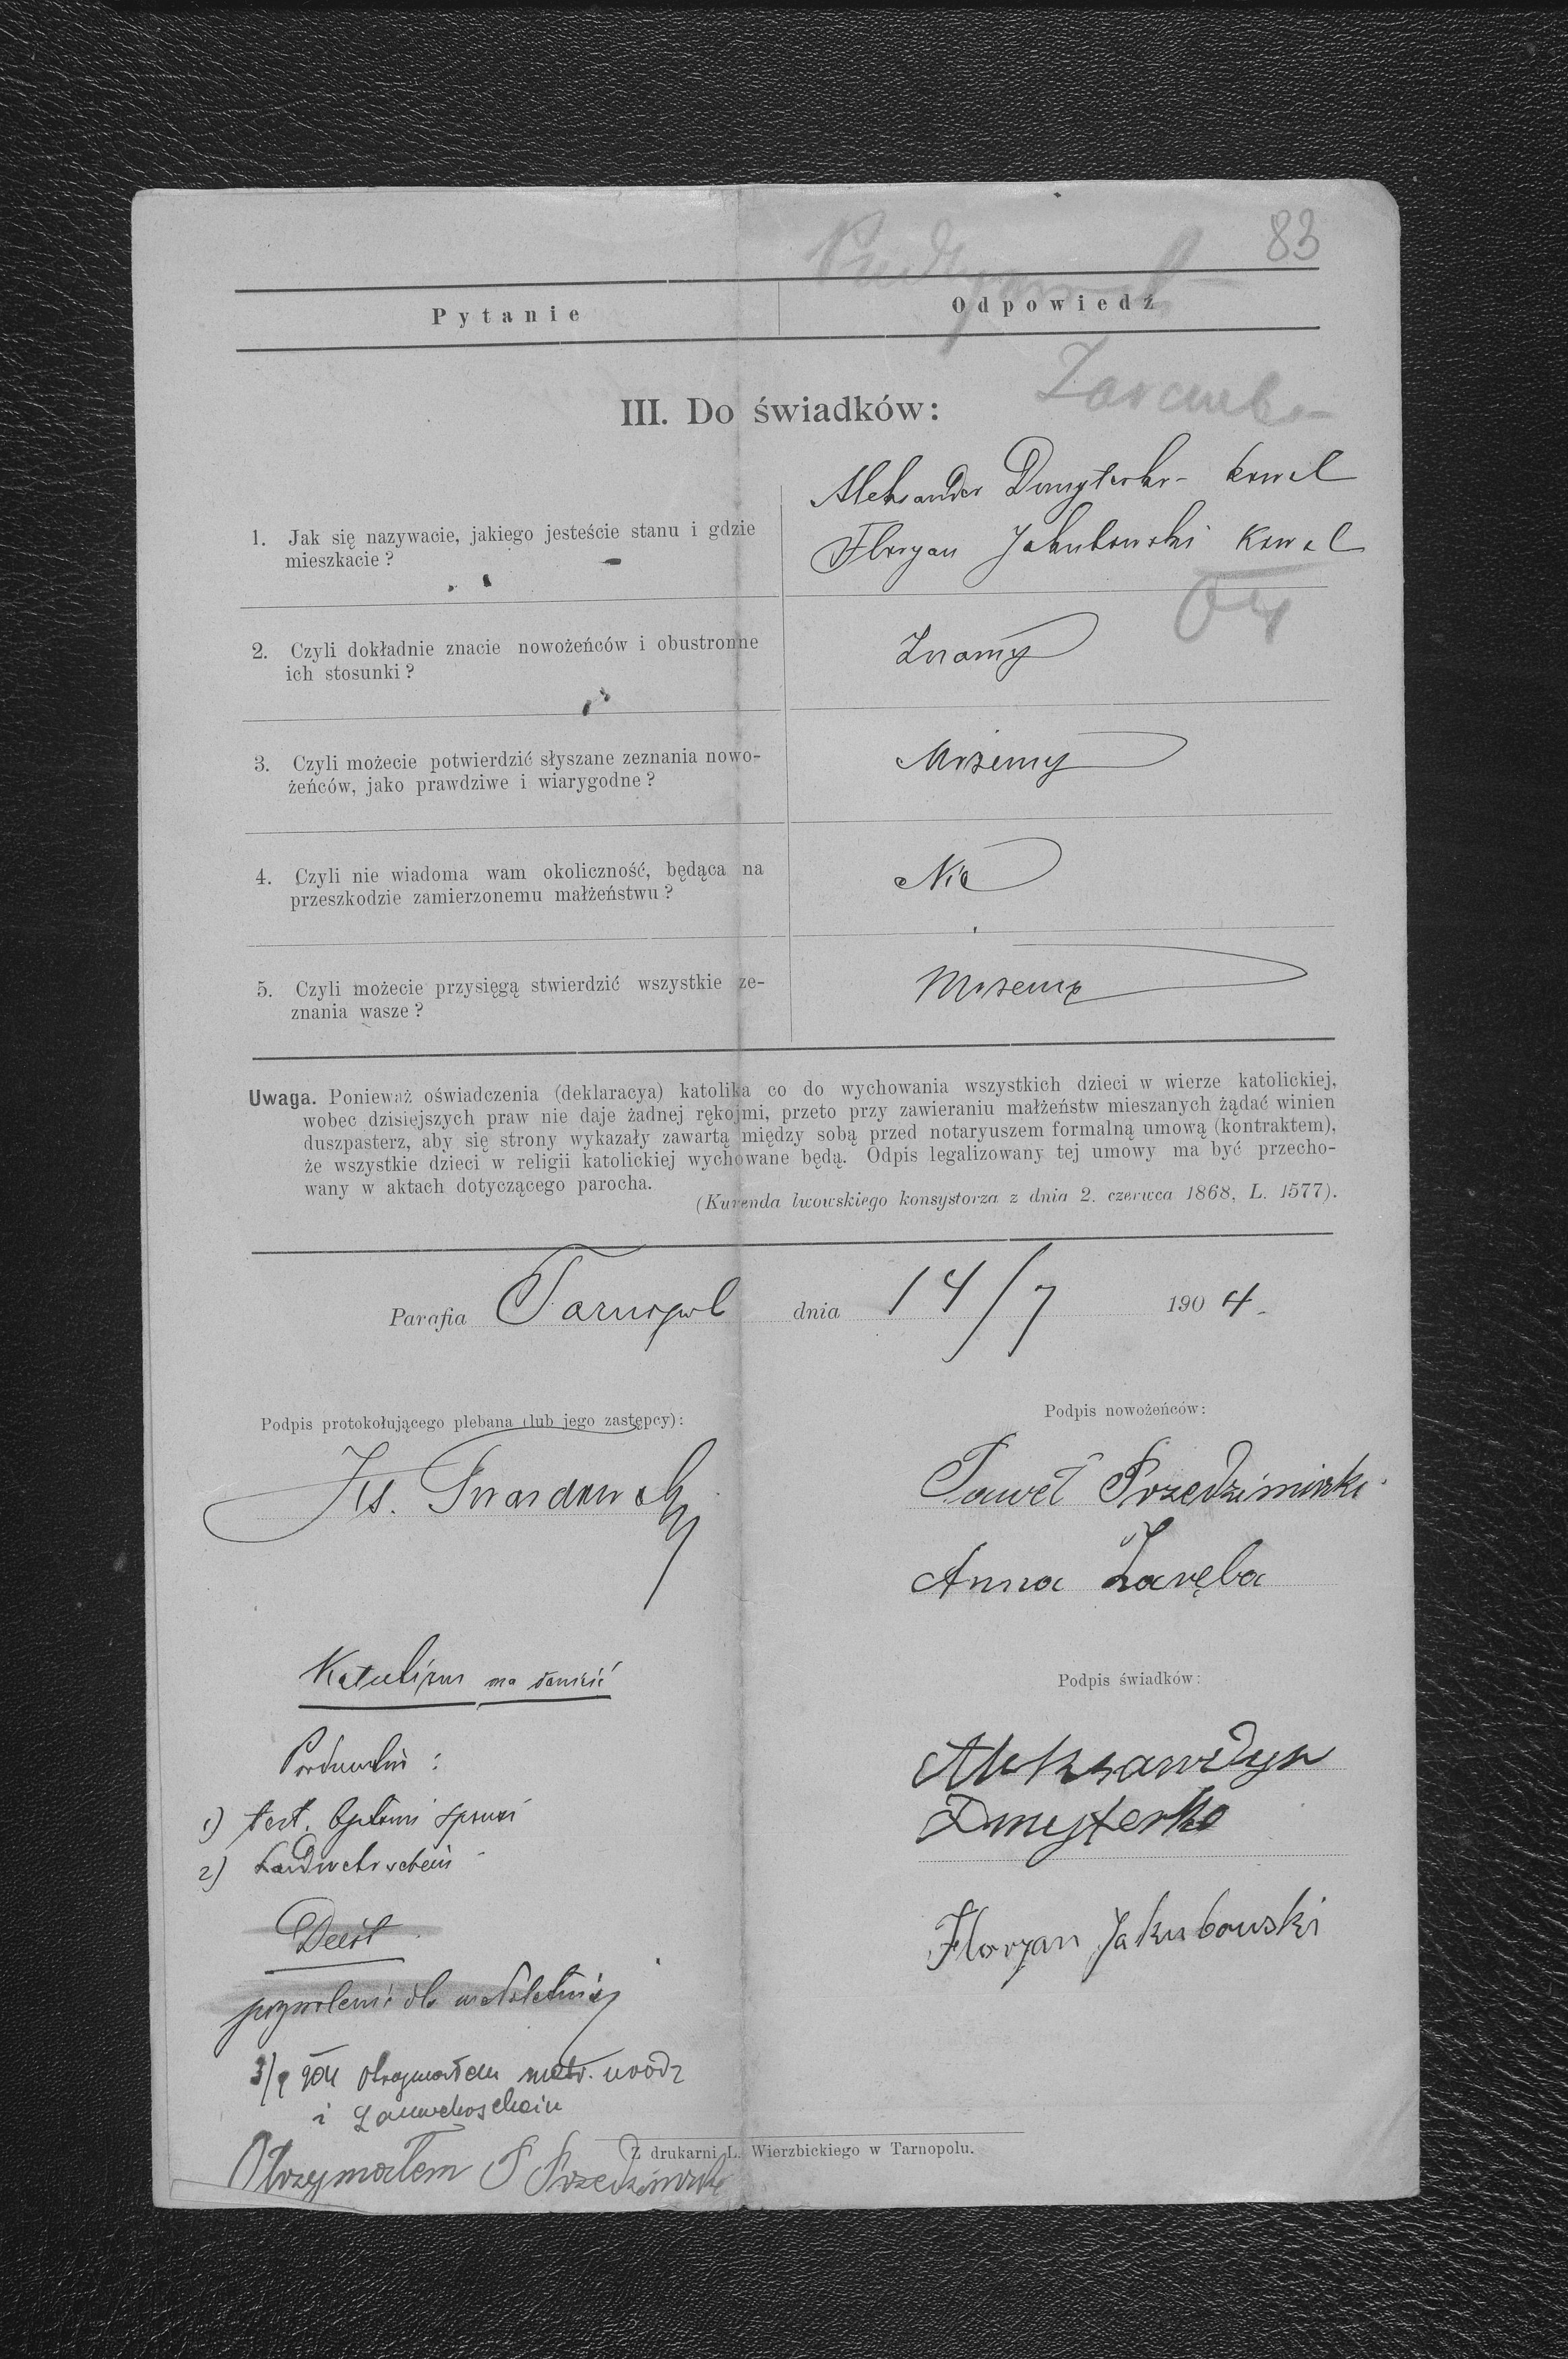 83
Pytanie Odpowiedź
Zaremba
III. Do świadków:
Aleksander Dmyterko - kowal
Floryan Jakubowski kowal
1. Jak się nazywacie, jakiego jesteście stanu i gdzie
mieszkacie?
2. Czyli dokładnie znacie nowożeńców i obustronne
ich stosunki?
Znamy
3. Czyli możecie potwierdzić słyszane zeznania nowo-
żeńców, jako prawdziwe i wiarygodne?
Możemy
4. Czyli nie wiadoma wam okoliczność, będąca na
przeszkodzie zamierzonemu małżeństwu?
Nie
5. Czyli możecie przysięgą stwierdzić wszystkie ze-
znania wasze?
Możemy
Uwaga. Ponieważ oświadczenia (deklaracya) katolika co do wychowania wszystkich dzieci w wierze katolickiej,
wobec dzisiejszych praw nie daje żadnej rękojmi, przeto przy zawieraniu małżeństw mieszanych żądać winien
duszpasterz, aby się strony wykazały zawartą między sobą przed notaryuszem formalną umową (kontraktem),
że wszystkie dzieci w religii katolickiej wychowane będą. Odpis legalizowany tej umowy ma być przecho-
wany w aktach dotyczącego parocha.
(Kurenda lwowskiego konsystorza z dnia 2. czerwca 1868, L. 1577).
Parafia Tarnopol dnia 14/7 1904.
Podpis protokołującego plebana (lub jego zastępcy):
Ks. Twardowski
Podpis nowożeńców:
Paweł Przedzimirski
Anna Zaręba
Podpis świadków:
Aleksandyr
Dmyterko
Floryan Jakubowski
1) test.
2) Landwehrschein
Deest
pozwolenie dla małoletniej
3/9 904 otrzymałem metr. urodz
i Landwehrschein
Otrzymałem P Przedzimirski
Z drukarni L. Wierzbickiego w Tarnopolu.